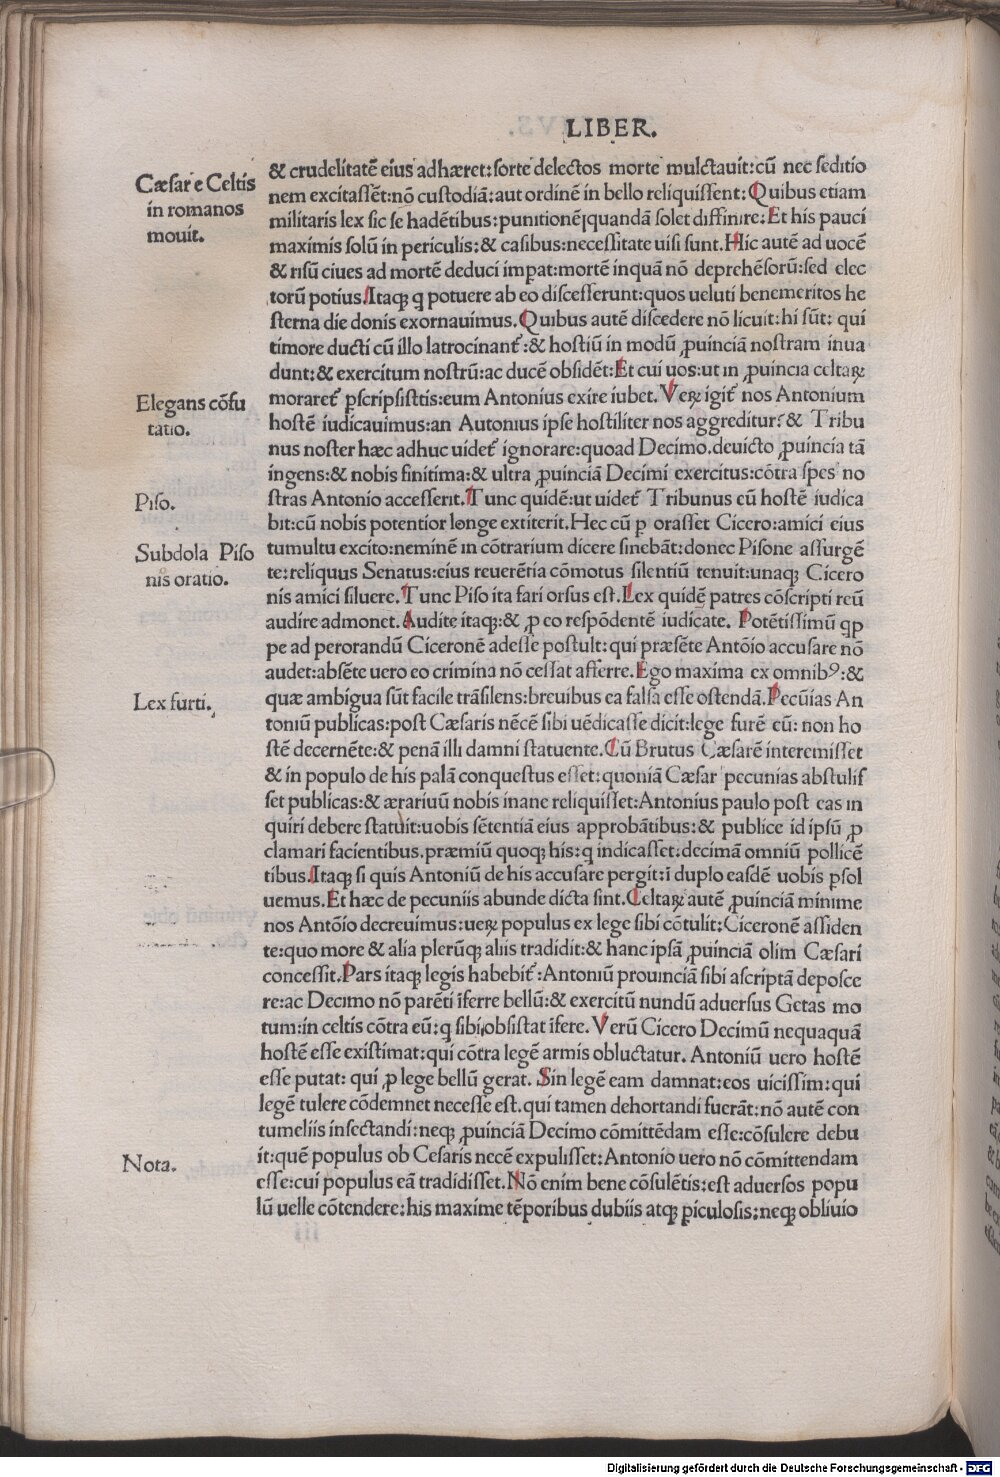 LIBER.
Cæsar e Celtis
in romanos
mouit.
Elegans cōfu
tatio.
Piso.
Subdola Piso
nis oratio.
Lex furti.
Nota.
& crudelitatē eius adhæret: sorte delectos morte mulctauit: cū nec seditio
nem excitassēt: nō custodiā: aut ordinē in bello reliquissent: Quibus etiam
militaris lex sic se hadētibus: punitionē quandā solet diffinire: Et his pauci
maximis solū in periculis: & casibus: necessitate uisi sunt. Hic autē ad uocē
& risū ciues ad mortē deduci impat: mortē inquā nō deprehēsorū: sed elec
torū potius. Itaqȝ q potuere ab eo discesserunt: quos ueluti benemeritos he
sterna die donis exornauimus. Quibus autē discedere nō licuit: hi sūt: qui
timore ducti cū illo latrocinant̄: & hostiū in modū ꝓuinciā nostram inua
dunt: & exercitum nostrū: ac ducē obsidēt: Et cui uos: ut in ꝓuincia celtaꝝ
moraret̄ p̄scripsisttis: eum Antonius exire iubet. Veꝝ igit̄ nos Antonium
hostē iudicauimus: an Autonius ipse hostiliter nos aggreditur? & Tribu
nus noster hæc adhuc uidet̄ ignorare: quoad Decimo. deuicto ꝓuincia tā
ingens: & nobis finitima: & ultra ꝓuinciā Decimi exercitus: cōtra spes no
stras Antonio accesserit. Tunc quidē: ut uidet̄ Tribunus eū hostē iudica
bit: cū nobis potentior longe extiterit. Hec cū p orasset Cicero: amici eius
tumultu excito: neminē in cōtrarium dicere sinebāt: donec Pisone assurgē
te: reliquus Senatus: eius reuerētia cōmotus silentiū tenuit: unaqȝ Cicero
nis amici siluere. Tunc Piso ita fari orsus est. Lex quidē patres cōscripti reū
audire admonet. Audite itaqȝ: & ꝓ eo respōdentē iudicate. Potētissimū qp
pe ad perorandū Ciceronē adesse postult: qui præsēte Antōio accusare nō
audet: absēte uero eo crimina nō cessat afferre. Ego maxima ex omnibꝰ: &
quæ ambigua sūt facile trāsilens: breuibus ea falsa esse ostendā. Pecūias An
toniū publicas: post Cæsaris nēcē sibi uēdicasse dicit: lege furē eū: non ho
stē decernēte: & penā illi damni statuente. Cū Brutus Cæsarē interemisset
& in populo de his palā conquestus esset: quoniā Cæsar pecunias abstulis
set publicas: & ærariuū nobis inane reliquisset: Antonius paulo post eas in
quiri debere statuit: uobis sētentiā eius approbātibus: & publice id ipsū ꝓ
clamari facientibus. præmiū quoqȝ his: q indicasset: decimā omniū pollicē
tibus. Itaqȝ si quis Antoniū de his accusare pergit: ī duplo easdē uobis ꝑsol
uemus. Et hæc de pecuniis abunde dicta sint. Celtaꝝ autē ꝓuinciā minime
nos Antōio decreuimus: ueꝝ populus ex lege sibi cōtulit: Ciceronē assiden
te: quo more & alia plerūqȝ aliis tradidit: & hanc ipsā ꝓuinciā olim Cæsari
concessit. Pars itaqȝ legis habebit̄: Antoniū prouinciā sibi ascriptā deposce
re: ac Decimo nō parēti īferre bellū: & exercitū nundū aduersus Getas mo
tum: in celtis cōtra eū: q sibi obsistat īfere. Verū Cicero Decimū nequaquā
hostē esse existimat: qui cōtra legē armis obluctatur. Antoniū uero hostē
esse putat: qui ꝓ lege bellū gerat. Sin legē eam damnat: eos uicissim: qui
legē tulere cōdemnet necesse est. qui tamen dehortandi fuerāt: nō autē con
tumeliis insectandi: neqȝ ꝓuinciā Decimo cōmittēdam esse: cōsulere debu
it: quē populus ob Cesaris necē expulisset: Antonio uero nō cōmittendam
esse: cui populus eā tradidisset. Nō enim bene cōsulētis: est aduersos popu
lū uelle cōtendere: his maxime tēporibus dubiis atqȝ ꝑiculosis: neqȝ obliuio
Digitalisierung gefördert durch die Deutsche Forschungsgemeinschaft - DFG